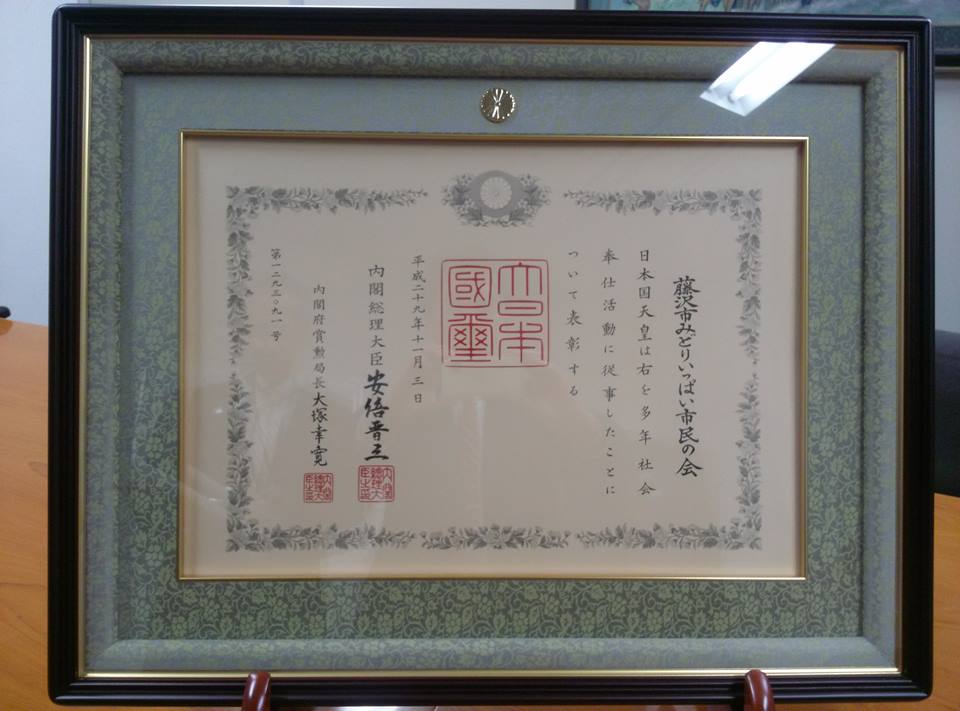 藤沢市みどりいっぱい市民の会
日本国天皇は右を多年社会
奉仕活動に従事したことに
ついて表彰する
大日本
國璽
平成二十九年十一月三日
内閣総理大臣 安倍晋三
内閣府賞勲局長 大塚幸寛
第一二九三〇九一号